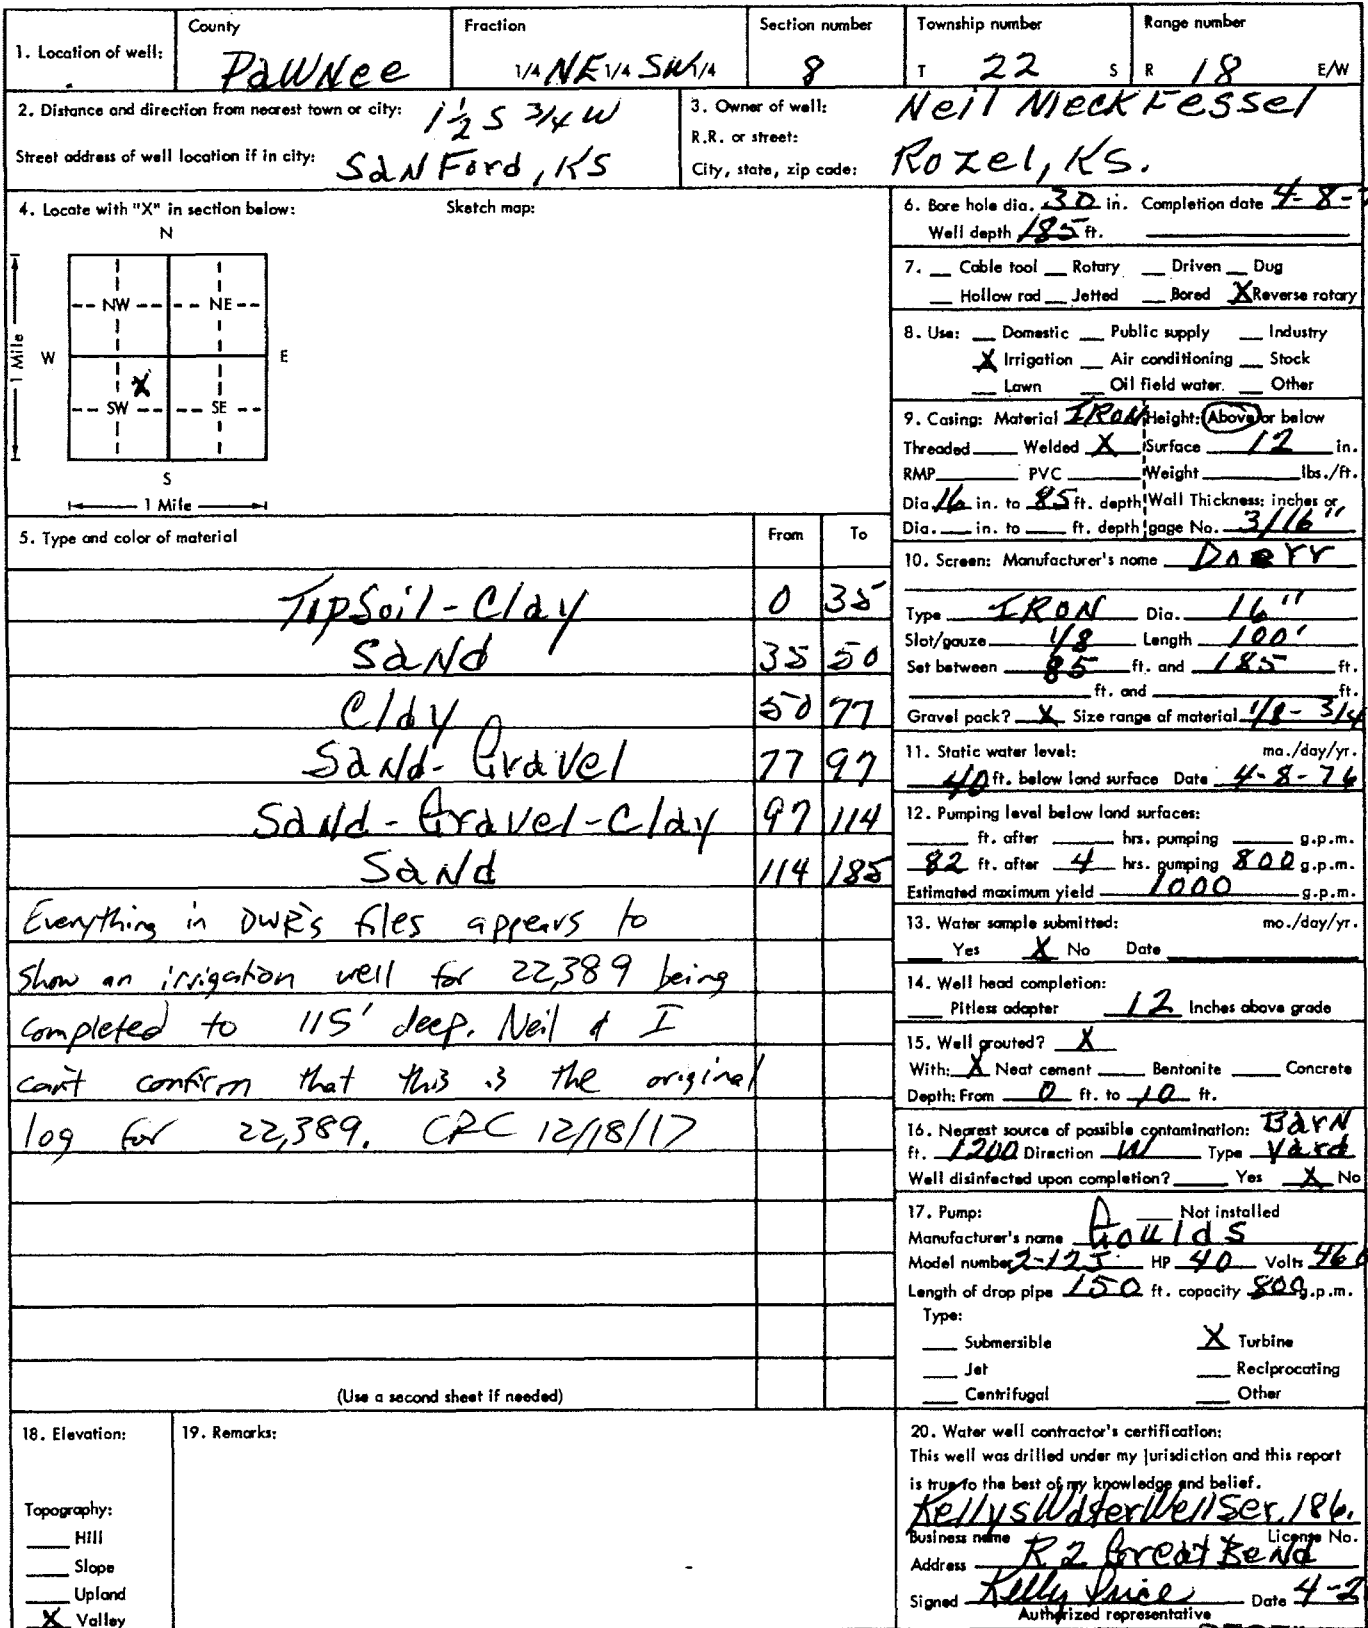 1. Location of well: County Pawnee Fraction 1/4 NE 1/4 SW 1/4 Section number 8 Township number T 22 S Range number R 18 E/W
2. Distance and direction from nearest town or city: 1 1/2 S 3/4 W
Street address of well location if in city: SanFord, KS
3. Owner of well: Neil MeckFessel
R.R. or street:
City, state, zip code: Rozel, KS.
4. Locate with "X" in section below: Sketch map:
N
NW NE
W E
1 Mile
X
SW SE
S
1 Mile
5. Type and color of material From To
TopSoil-Clay 0 35
Sand 35 50
Clay 50 77
Sand-Gravel 77 97
Sand-Gravel-Clay 97 114
Sand 114 185
Everything in DWR's files appears to
show an irrigation well for 22,389 being
completed to 115' deep. Neil & I
can't confirm that this is the original
log for 22,389. CRC 12/18/17
(Use a second sheet if needed)
6. Bore hole dia. 30 in. Completion date 4-8-
Well depth 185 ft.
7. __ Cable tool __ Rotary __ Driven __ Dug
__ Hollow rod __ Jetted __ Bored X Reverse rotary
8. Use: __ Domestic __ Public supply __ Industry
X Irrigation __ Air conditioning __ Stock
__ Lawn __ Oil field water. __ Other
9. Casing: Material IRON Height: Above or below
Threaded __ Welded X Surface 12 in.
RMP __ PVC __ Weight __ lbs./ft.
Dia 16 in. to 85 ft. depth Wall Thickness: inches or
Dia. __ in. to __ ft. depth gage No. 3/16"
10. Screen: Manufacturer's name Doerr
Type IRON Dia. 16"
Slot/gauze 1/8 Length 100'
Set between 85 ft. and 185 ft.
__ ft. and __ ft.
Gravel pack? X Size range of material 1/8-3/4
11. Static water level: mo./day/yr.
40 ft. below land surface Date 4-8-76
12. Pumping level below land surfaces:
__ ft. after __ hrs. pumping __ g.p.m.
82 ft. after 4 hrs. pumping 800 g.p.m.
Estimated maximum yield 1000 g.p.m.
13. Water sample submitted: mo./day/yr.
__ Yes X No Date __
14. Well head completion:
__ Pitless adapter 12 Inches above grade
15. Well grouted? X
With: X Neat cement __ Bentonite __ Concrete
Depth: From 0 ft. to 10 ft.
16. Nearest source of possible contamination: Barn
ft. 1200 Direction W Type Yard
Well disinfected upon completion? __ Yes X No
17. Pump: __ Not installed
Manufacturer's name Goulds
Model number 2-12J HP 40 Volts 460
Length of drop pipe 150 ft. capacity 800 g.p.m.
Type:
__ Submersible X Turbine
__ Jet __ Reciprocating
__ Centrifugal __ Other
18. Elevation:
Topography:
__ Hill
__ Slope
__ Upland
X Valley
19. Remarks:
20. Water well contractor's certification:
This well was drilled under my jurisdiction and this report
is true to the best of my knowledge and belief.
Kellys Water Well Ser. 186.
Business name License No.
Address R2 Great Bend
Signed Kelly Price Date 4-2
Authorized representative